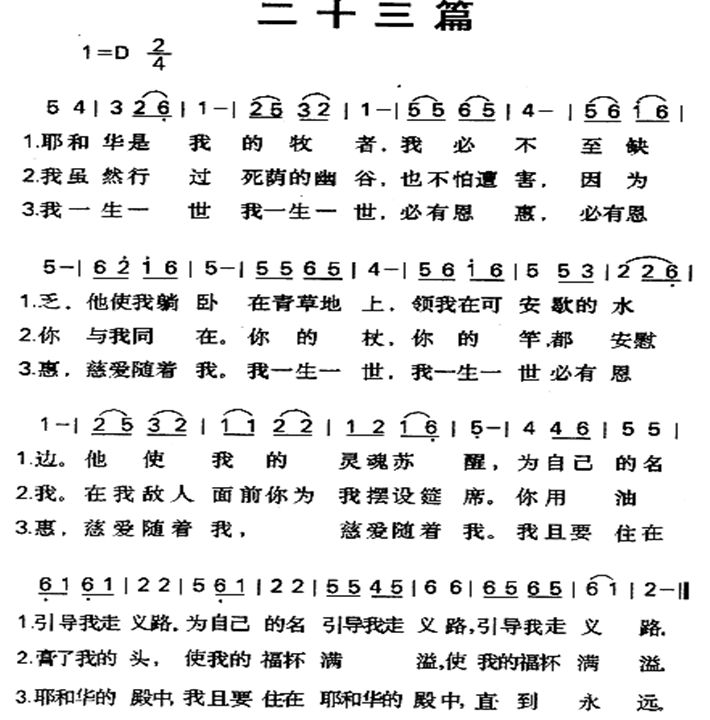 二十三篇
1=D 2/4
5 4 | 3 2 6 | 1 - | 2 5 3 2 | 1 - | 5 5 6 5 | 4 - | 5 6 1 6 |
1.耶和 华是 我 的 牧 者,我 必 不 至 缺
2.我虽 然行 过 死荫的幽 谷,也不怕遭 害, 因 为
3.我一 生一 世 我一生一 世,必有恩 惠, 必有恩
5 - | 6 2 1 6 | 5 - | 5 5 6 5 | 4 - | 5 6 1 6 | 5 5 3 | 2 2 6 |
1.乏, 他使我躺 卧 在青草地 上, 领我在可 安 歇的 水
2.你 与我同 在。你 的 杖,你 的 竿,都 安慰
3.惠, 慈爱随着 我。我一生一 世,我一生一 世 必有 恩
1 - | 2 5 3 2 | 1 1 2 2 | 1 2 1 6 | 5 - | 4 4 6 | 5 5 |
1.边。他 使 我 的 灵魂苏 醒, 为自己 的名
2.我。在我敌人 面前你为 我摆设筵 席。你用 油
3.惠, 慈爱随着 我, 慈爱随着 我。我且要 住在
6 1 6 1 | 2 2 | 5 6 1 | 2 2 | 5 5 4 5 | 6 6 | 6 5 6 5 | 6 1 | 2 - ‖
1.引导我走 义路.为自己 的名 引导我走 义 路,引导我走 义 路.
2.膏了我的 头, 使我的 福杯 满 溢,使 我的福杯 满 溢.
3.耶和华的 殿中,我且要 住在 耶和华的 殿中,直 到 永 远.